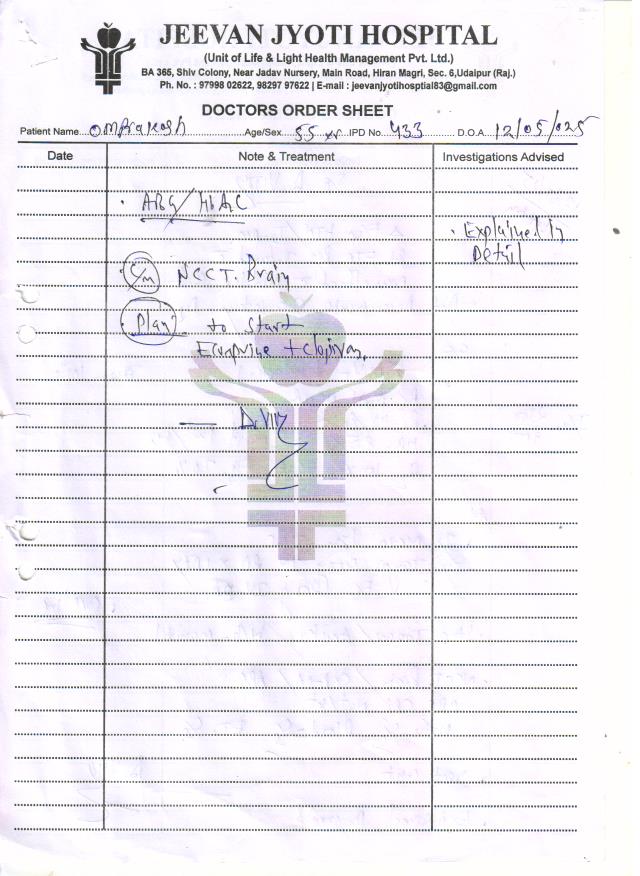 JEEVAN JYOTI HOSPITAL
(Unit of Life & Light Health Management Pvt. Ltd.)
BA 365, Shiv Colony, Near Jadav Nursery, Main Road, Hiran Magri, Sec. 6,Udaipur (Raj.)
Ph. No. : 97998 02622, 98297 97622 | E-mail : jeevanjyotihosptial83@gmail.com
DOCTORS ORDER SHEET
Patient Name Omprakash Age/Sex 55 yr IPD No 433 D.O.A 12/05/025
Date Note & Treatment Investigations Advised
ABG/HbA1C
Explained in
Detail
NCCT. Brain
Plan to Start
Ecosprine +